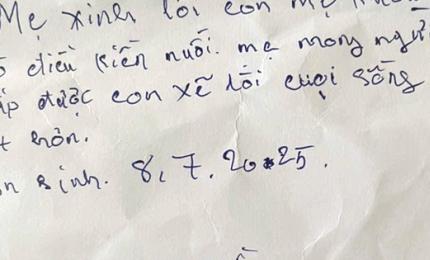 Mẹ xinh lỗi con mẹ
điều kiến nuôi. mẹ mong ngư
đưọc con xẽ lói cuọi sống
hơn.
sinh. 8, 7. 2025.